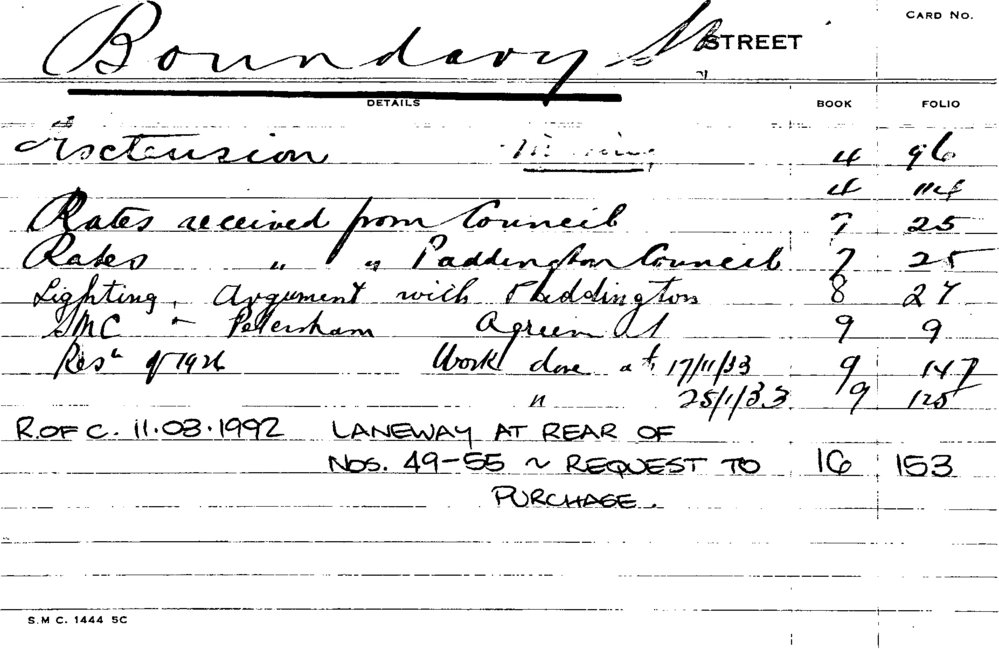 CARD No.
Boundary St STREET
DETAILS BOOK FOLIO
Extension 4 96
4 114
Rates received from Council 7 25
Rates " " Paddington Council 7 25
Lighting, Argument with Paddington 8 27
SMC Petersham Agreem t 9 9
Resn of 1926 Work done at 17/11/33 9 147
" 25/1/33 9 125
R.OF C. 11.03.1992 LANEWAY AT REAR OF
NOS. 49-55 ~ REQUEST TO 16 153
PURCHASE.
S.M C. 1444 5C